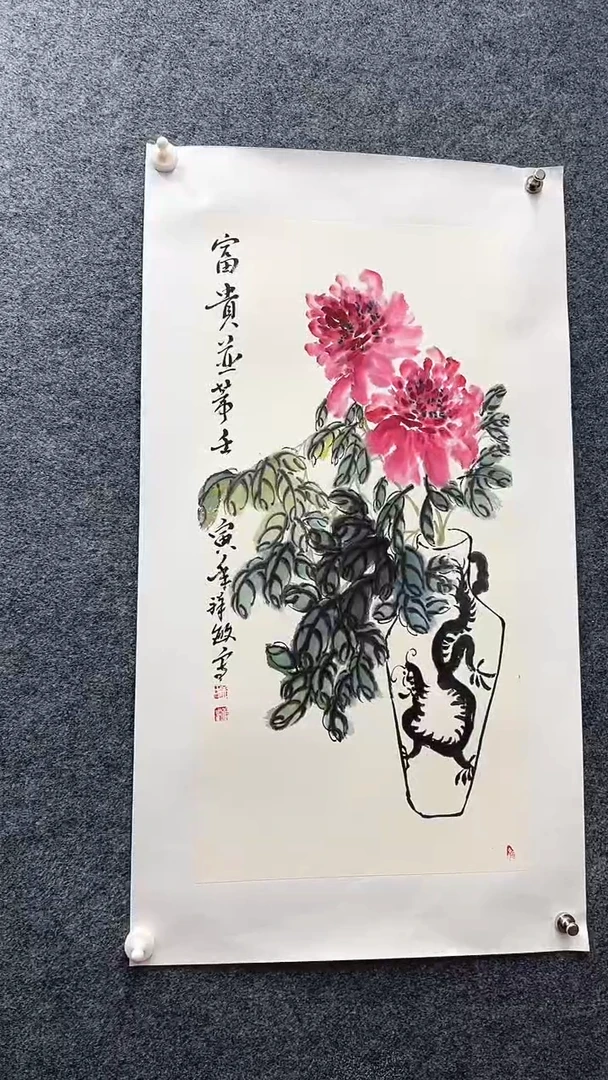 富貴並蒂壬寅年祥敏寫